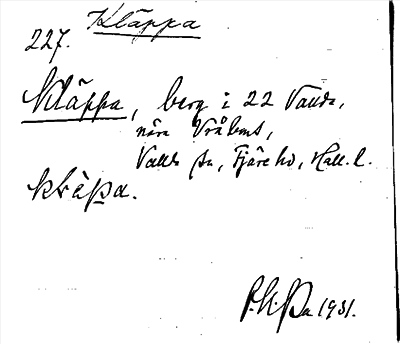 Kläppa
227.
Kläppa, berg i 22 Valda,
nära
Valda sn, Fjäre hd, Hall. l.
1931.